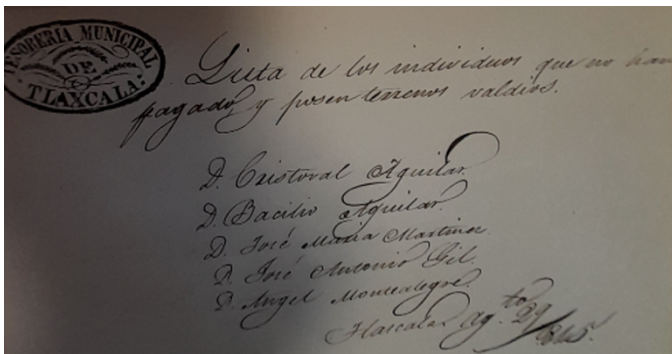 TESORERIA MUNICIPAL
DE
TLAXCALA.
Lista de los individuos que no han
pagado, y poseen terrenos valdios.
D. Cristoval Aguilar.
D. Bacilio Aguilar.
D. José Maria Martinez
D. José Antonio Gil.
D. Angel Montealegre.
Tlaxcala Ag.to 29